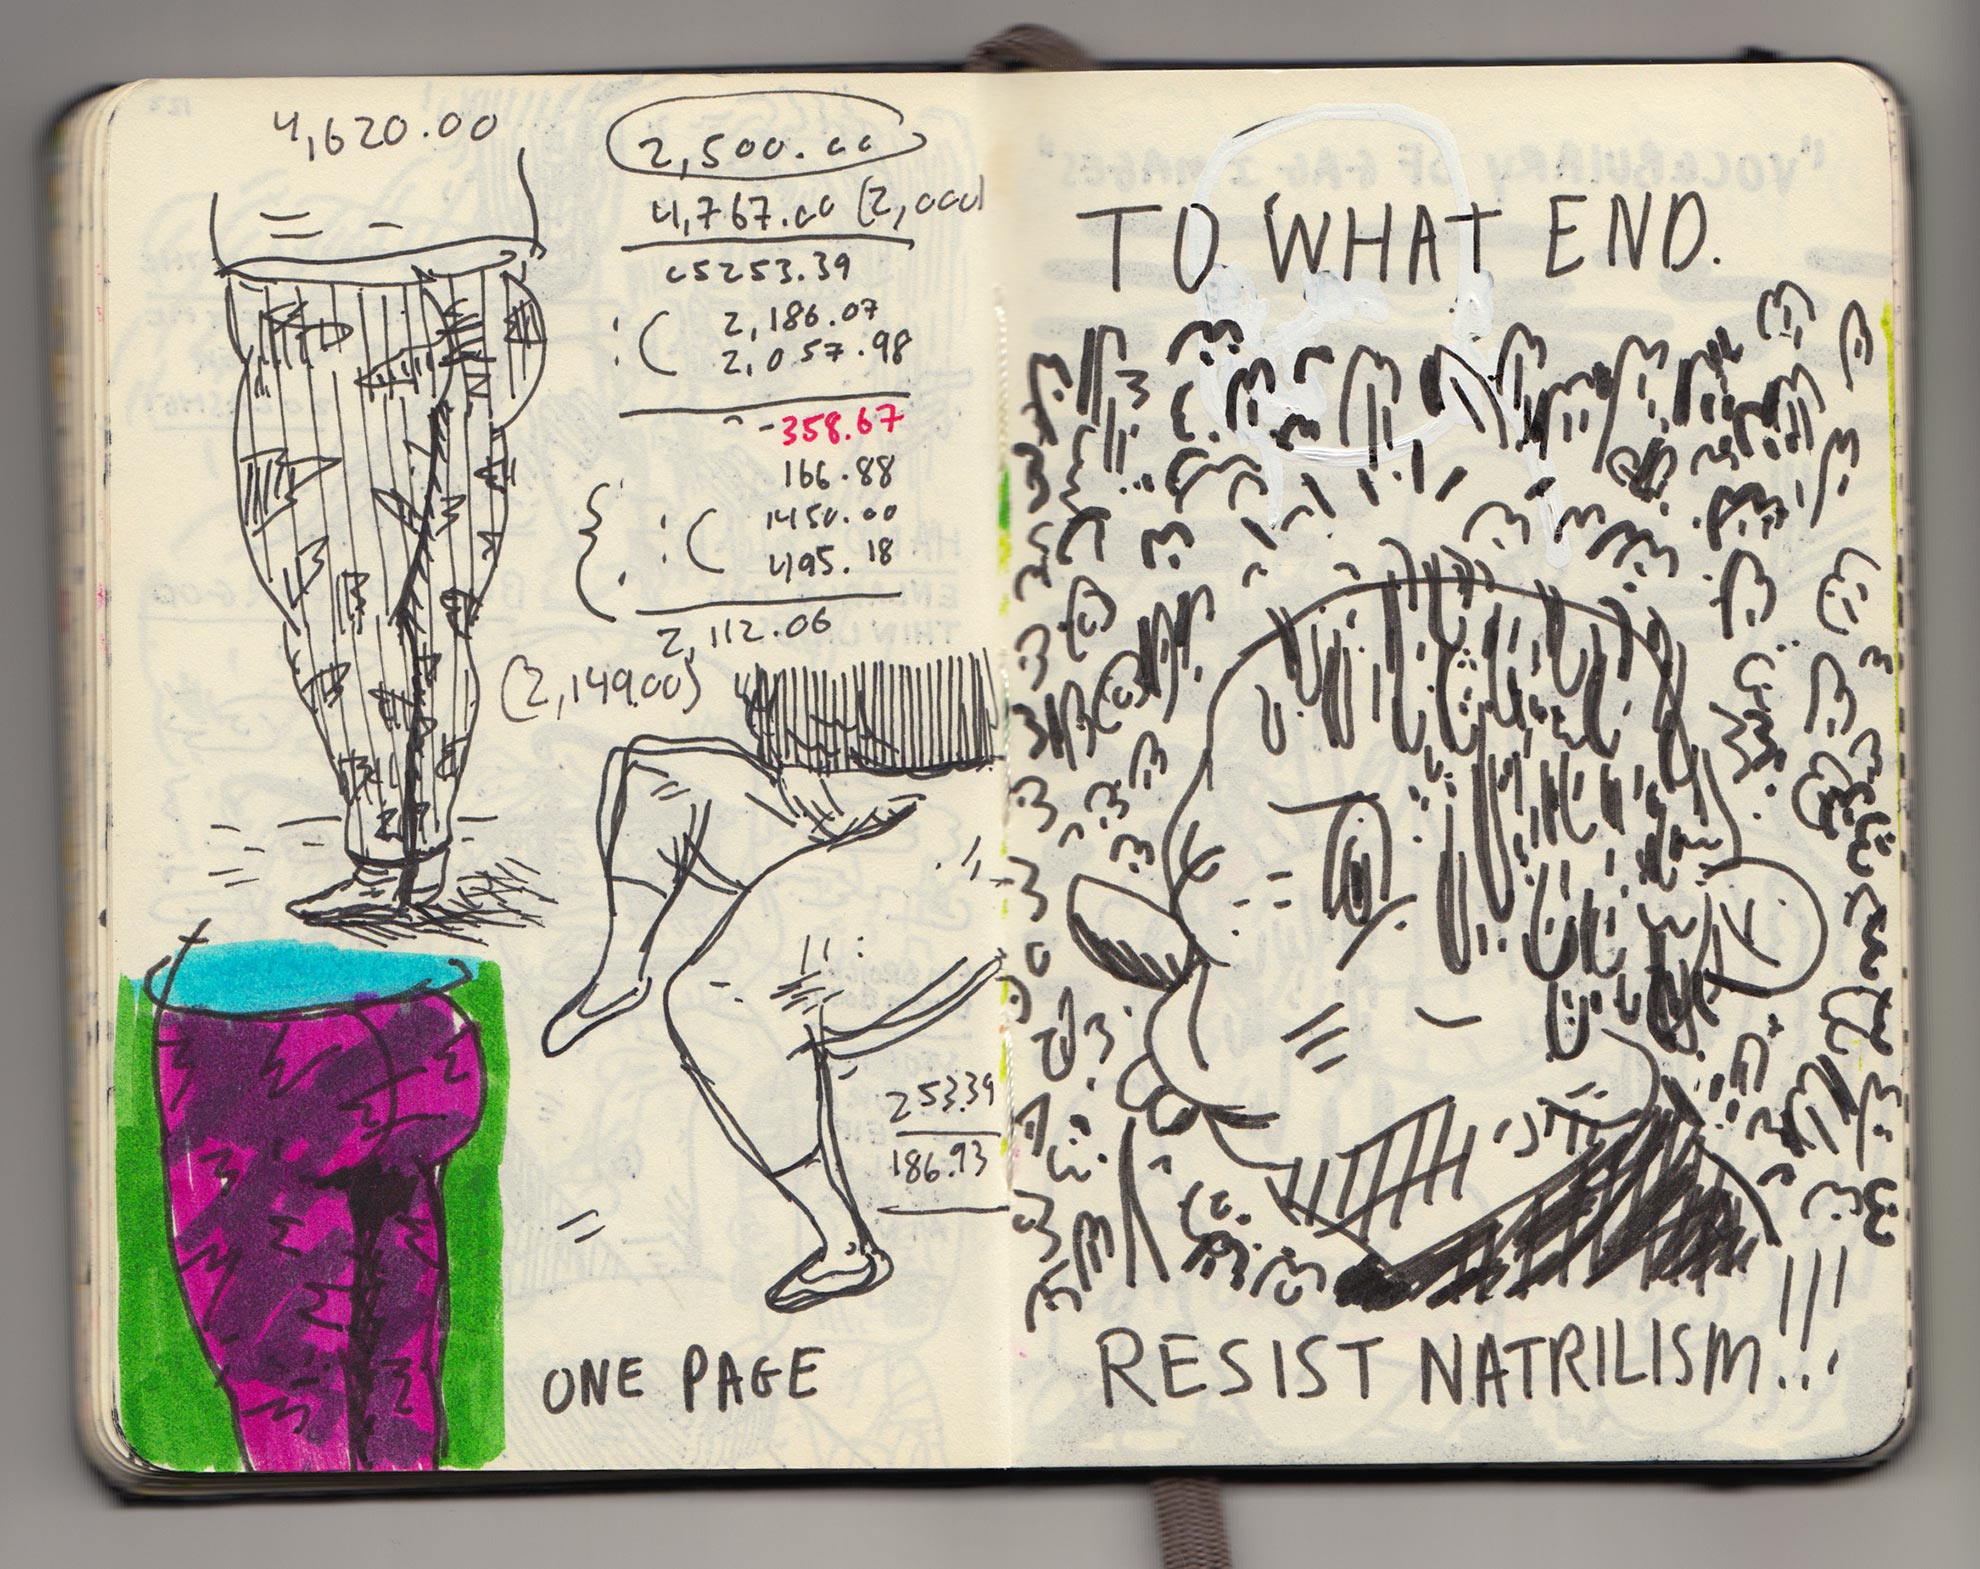 4,620.00
2,500.00
4,767.00 (2,000)
5253.39
:( 2,186.07
2,057.98
-358.67
166.88
:( 1450.00
495.18
2,112.06
(2,149.00)
253.39
186.93
ONE PAGE
TO WHAT END.
RESIST NATRILISM...